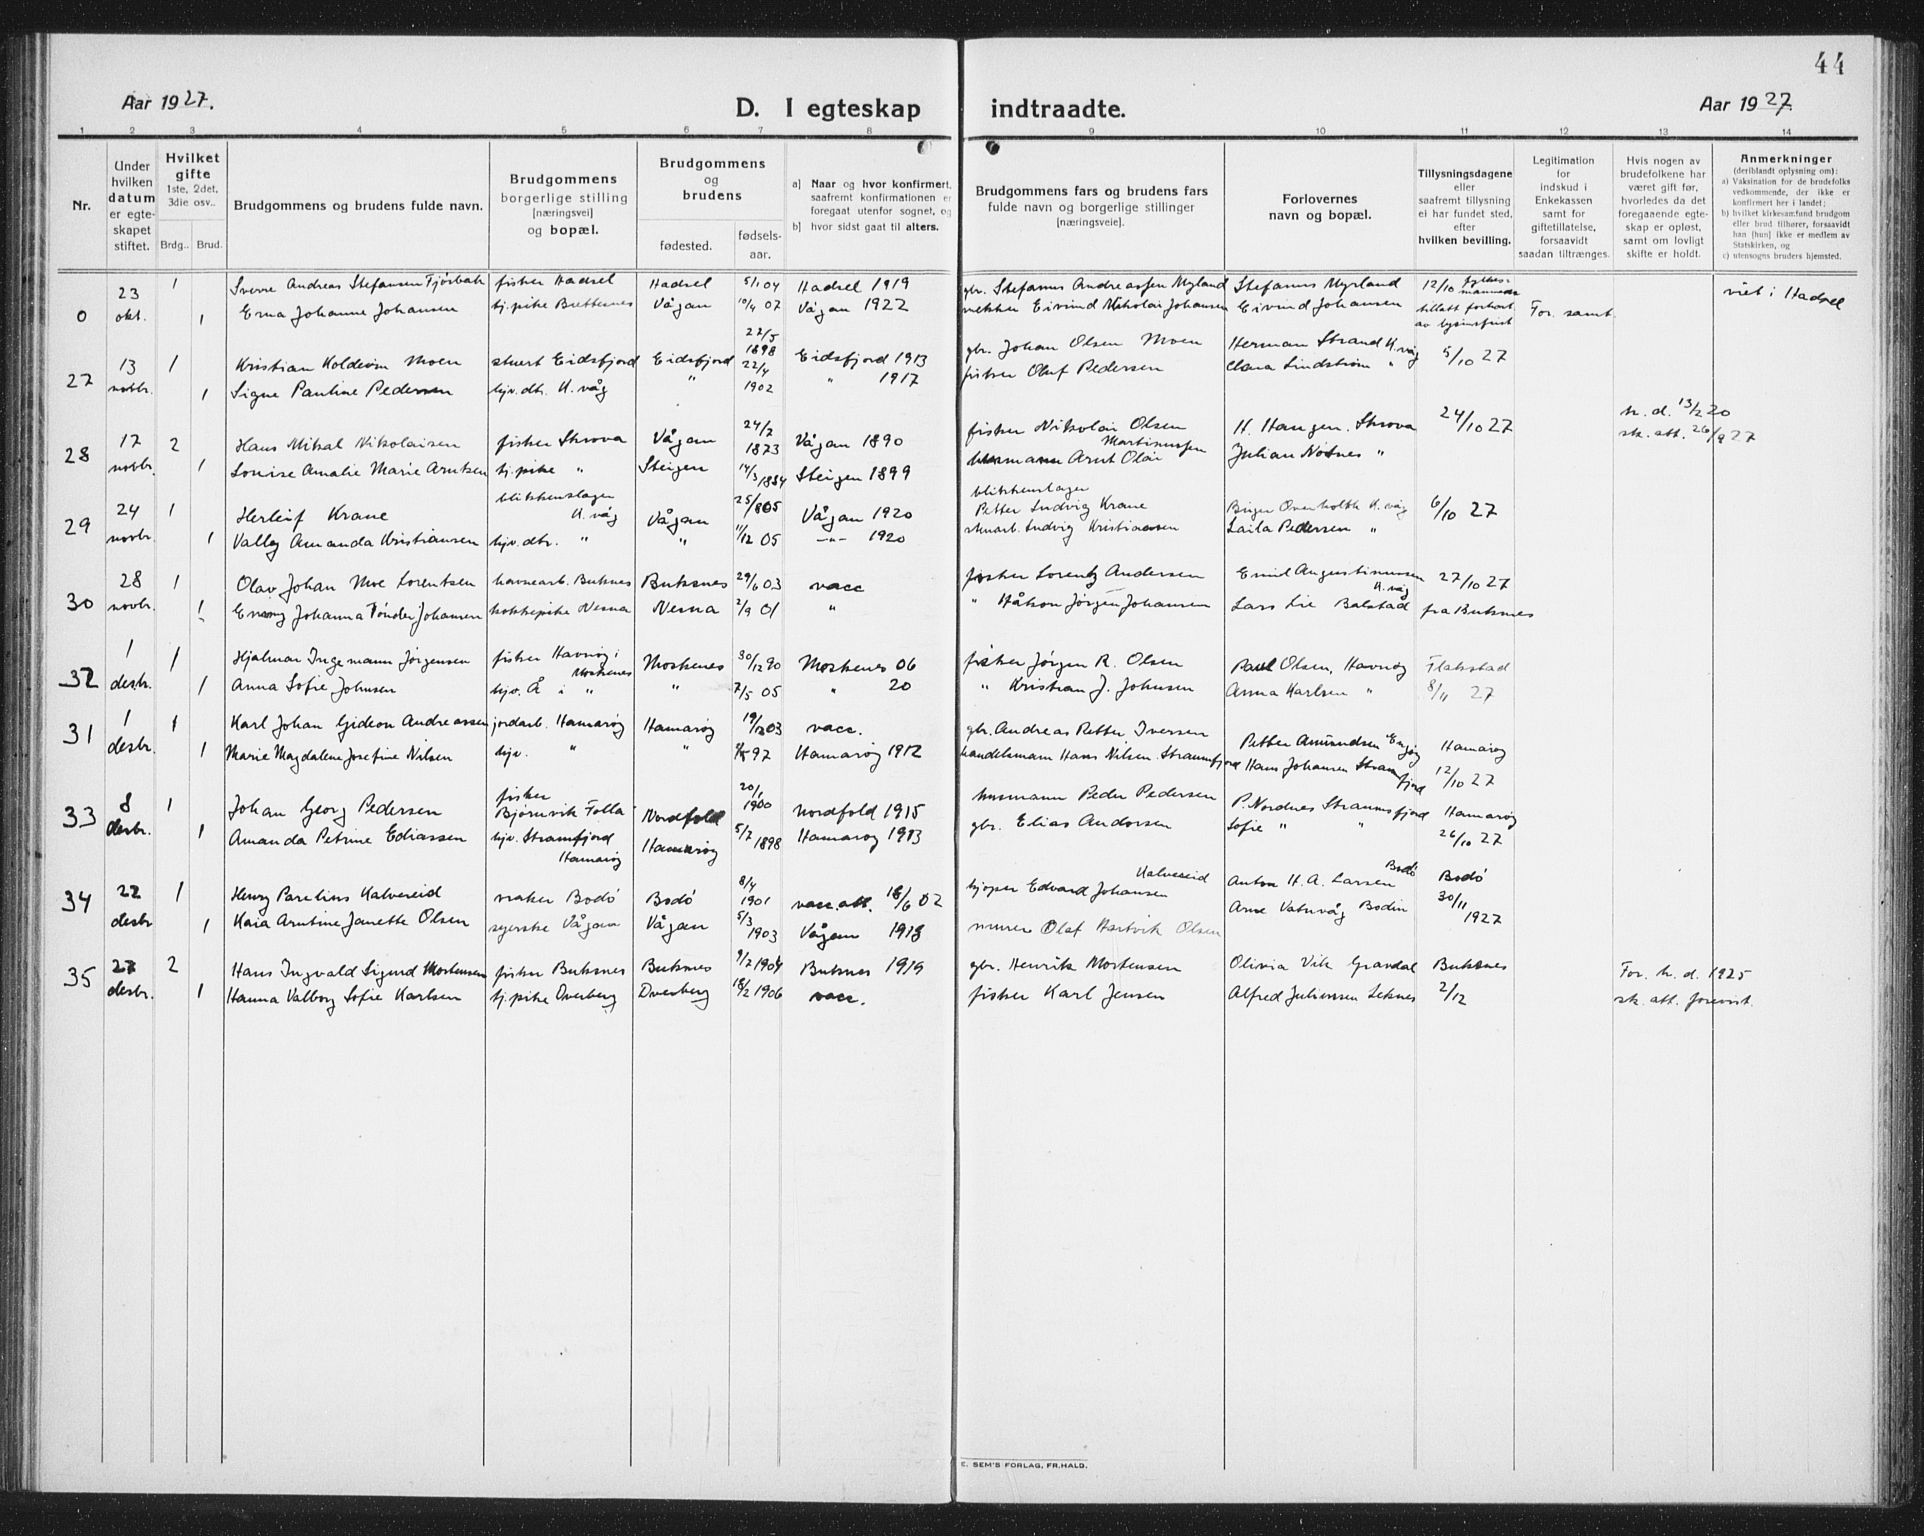 44
Aar 1927.
D. I egteskap indtraadte.
Aar 1927.
1 2 3 4 5 6 7 8 9 10 11 12 13 14
Nr.
Under hvilken datum er egteskapet stiftet.
Hvilket gifte 1ste, 2det, 3die osv..
Brdg.. Brud.
Brudgommens og brudens fulde navn.
Brudgommens borgerlige stilling [næringsvei] og bopæl.
Brudgommens og brudens
fødested.
fødselsaar.
a) Naar og hvor konfirmert, saafremt konfirmationen er foregaat utenfor sognet, og
b) hvor sidst gaat til alters.
Brudgommens fars og brudens fars fulde navn og borgerlige stillinger [næringsveie].
Forlovernes navn og bopæl.
Tillysningsdagene eller saafremt tillysning ei har fundet sted, efter hvilken bevilling.
Legitimation for indskud i Enkekassen samt for giftetillatelse, forsaavidt saadan tiltrænges.
Hvis nogen av brudefolkene har været gift før, hvorledes da det foregaaende egteskap er opløst, samt om lovligt skifte er holdt.
Anmerkninger (deriblandt oplysning om):
a) Vaksination for de brudefolks vedkommende, der ikke er konfirmert her i landet;
b) hvilket kirkesamfund brudgom eller brud tilhører, forsaavidt han [hun] ikke er medlem av Statskirken, og
c) utensogns bruders hjemsted.
0 23 okt. 1 Sverre Andreas Stefansen Fjørbak fisker Hadsel Hadsel 5/1 04 Hadsel 1919 gbr. Stefanus Andreassen Myrland Stefanus Myrland 12/10 fylkesmannens viet i Hadsel
1 Erna Johanne Johansen tj.pike Brettesnes Vågan 10/4 07 Vågan 1922 Eivind Nikolai Johansen Eivind Johansen tillatt forkort. av lysningsfrist For. samt.
27 13 novbr. 1 Kristian Koldevin Moen stuert Eidsfjord Eidsfjord 22/5 1898 Eidsfjord 1913 gbr. Johan Olsen Moen Herman Strand K.våg 5/10 27
1 Signe Pauline Pedersen hjv. dtr. K.våg " 22/4 1902 " 1917 fisker Oluf Pedersen Clara Lindstrøm "
28 17 novbr. 2 Hans Mikal Nikolaisen fisker Skrova Vågan 24/2 1873 Vågan 1890 fisker Nikolai Olsen H. Haugen. Skrova 24/10 27 h. d. 13/2 20
1 Louise Amalie Marie Arntsen tj.pike " Steigen 14/3 1884 Steigen 1899 husmann Arnt Olai Martinussen Julian Nesnes " sk. att. 26/9 27
29 24 novbr. 1 Herleif Krane blikkenslager K.våg Vågan 25/8 05 Vågan 1920 blikkenslager Petter Ludvig Krane Birger Ovenholth K.våg 6/10 27
1 Valley Amanda Kristiansen hjv. dtr. " " 11/12 05 -"- 1920 stenarb. Ludvig Kristiansen Laila Pedersen "
30 28 novbr. 1 Olav Johan Moe Lorentsen havnearb. Buksnes Buksnes 29/6 03 vacc fisker Lorentz Andersen Emil Augustinussen K.våg 27/10 27
1 Johanna Tønder Johansen kokkepike Nesna Nesna 2/9 01 " " Håkon Jørgen Johansen Lars Lie Balstad fra Buksnes
32 1 desbr. 1 Hjalmar Ingemann Jørgensen fisker Havnøy i Moskenes Moskenes 30/12 90 Moskenes 06 fisker Jørgen R. Olsen Paul Olsen, Havnøy Flakstad
1 Anna Sofie Johnsen hjv. Å i " " 7/5 05 " 20 " Kristian J. Johnsen Anna Karlsen " 8/11 27
31 1 desbr. 1 Karl Johan Gideon Andreassen jordarb. Hamarøy Hamarøy 19/12 03 vacc. gbr. Andreas Petter Iversen Petter Amundsen Hamarøy
1 Marie Magdalene Josefine Nilsen hjv. " " 97 Hamarøy 1912 handelsmann Hans Nilsen. Straumfjord Hans Johansen Straumfjord 12/10 27
33 8 desbr. 1 Johan Georg Pedersen fisker Bjørnvik Folla Nordfold 20/1 1900 Nordfold 1915 husmann Peder Pedersen P. Nordnes Straumsfjord Hamarøy
1 Amanda Petrine Eliassen hjv. Straumfjord Hamarøy Hamarøy 5/7 1898 Hamarøy 1913 gbr. Elias Andorsen Sofie " " 26/10 27
34 22 desbr 1 Henry Parelius Kalvereid maker Bodø Bodø 8/4 1901 vacc. att. 18/6 02 kjøper Edvard Johansen Kalvereid Anton H. A. Larsen Bodø Bodø 30/11 1927
1 Kaia Arntine Janette Olsen syerske Vågan Vågan 5/3 1903 Vågan 1918 murer Olaf Hartvik Olsen Arne Vatnvåg Bodin
35 27 desbr. 2 Hans Ingvald Sigurd Mortensen fisker Buksnes Buksnes 9/7 1904 Buksnes 1919 gbr. Henrik Mortensen Olivia Vik Gravdal Buksnes For. h. d. 1925
1 Hanna Valborg Sofie Karlsen tj.pike Dverberg Dverberg 18/2 1906 vacc. fisker Karl Jensen Alfred Julinussen Leknes 2/12 sk. att. forevist.
E. SEM'S FORLAG, FR.HALD.